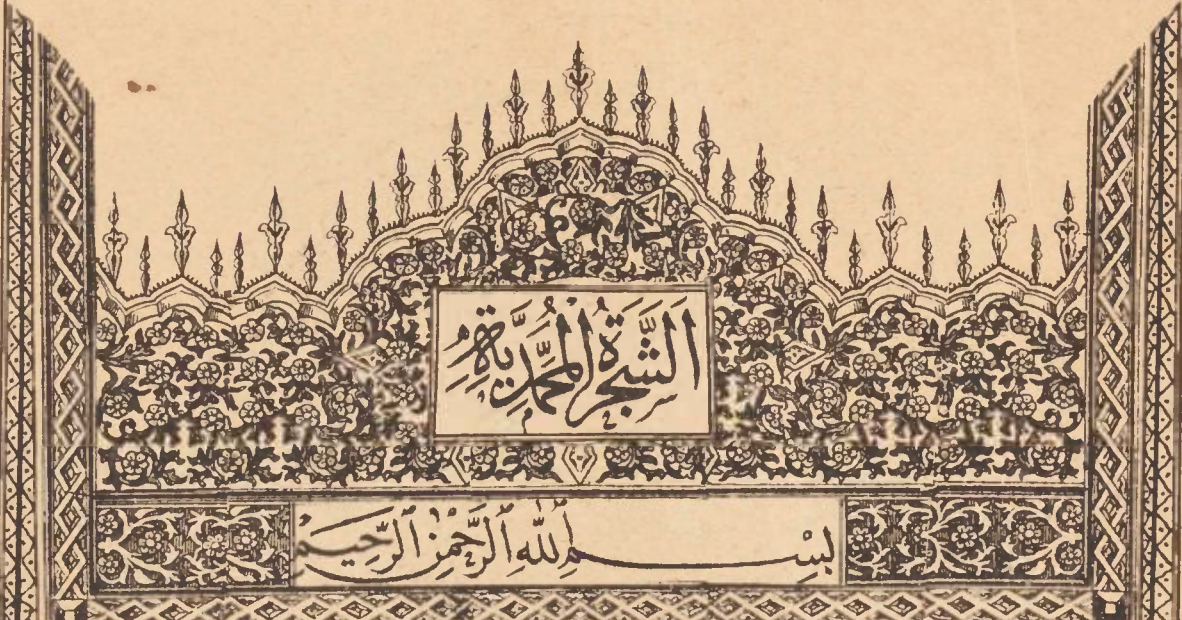 اَلشَّجَرَةُ المُحَمَّدِيَّةُ
بِسْمِ اللّٰهِ الرَّحْمٰنِ الرَّحِيمِ